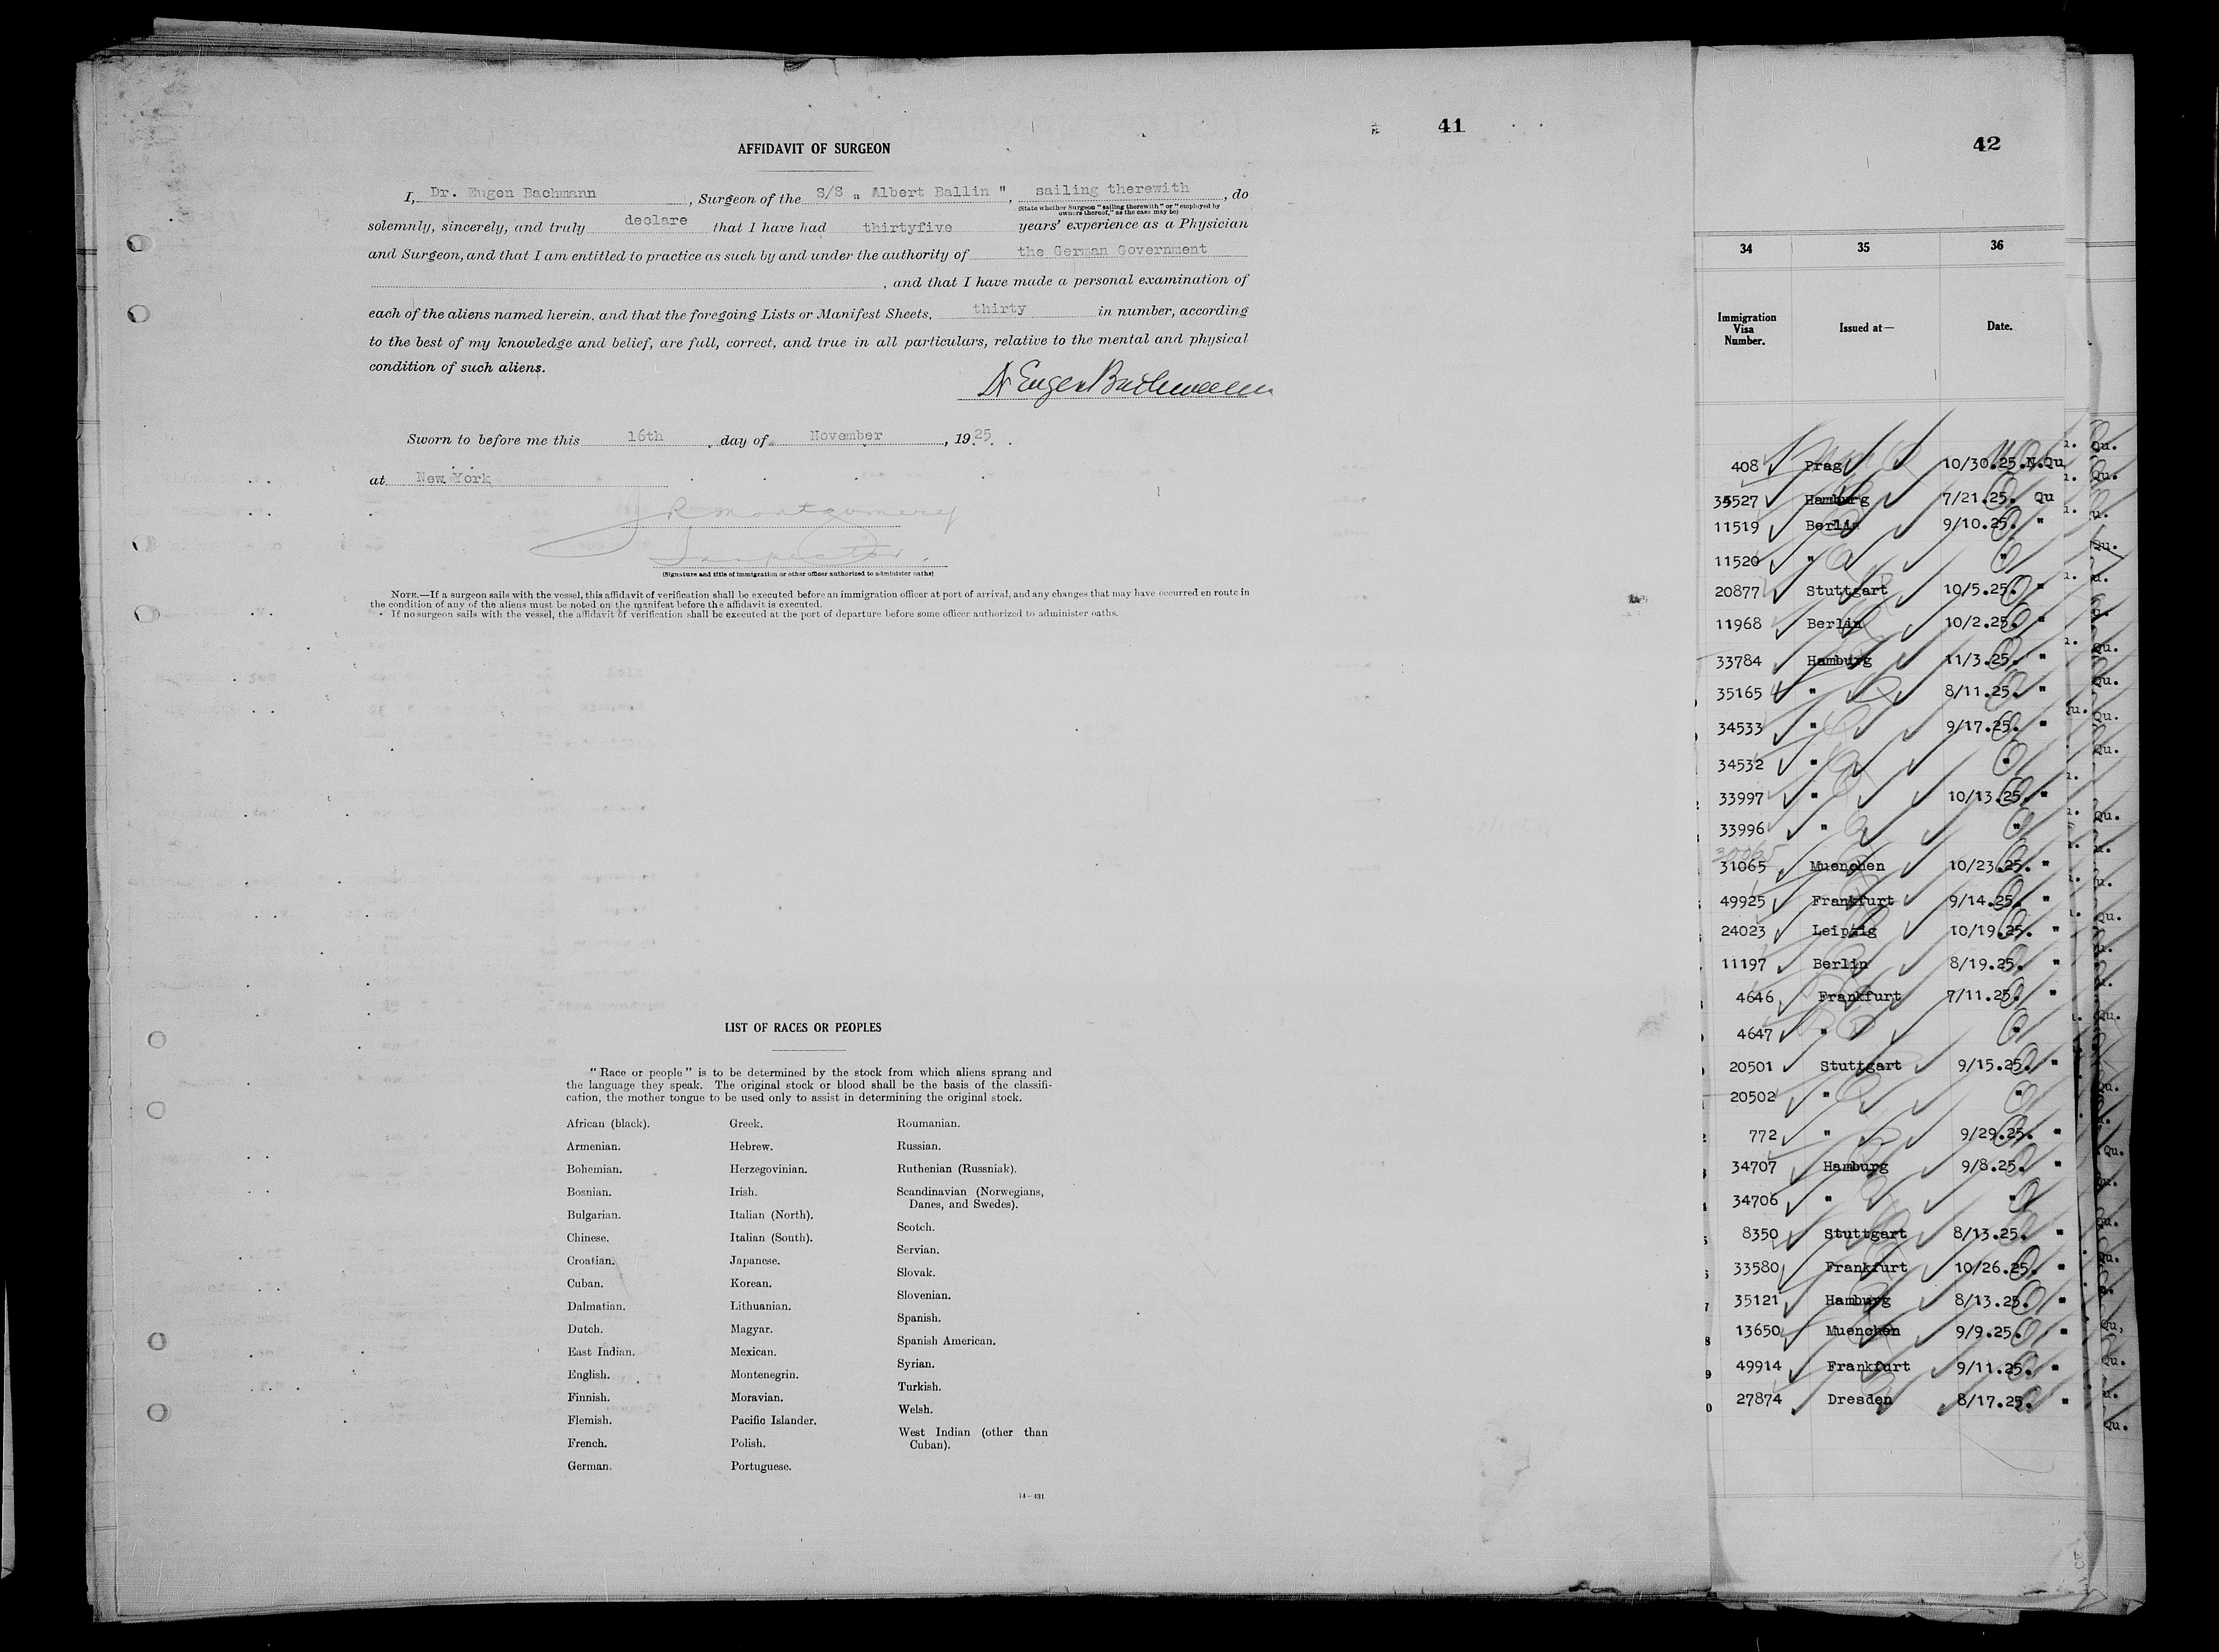 41
AFFIDAVIT OF SURGEON
I, Dr. Eugen Bachmann, Surgeon of the S/S „ Albert Ballin ", sailing therewith, do
(State whether Surgeon "sailing therewith" or "employed by
owners thereof," as the case may be)
solemnly, sincerely, and truly declare that I have had thirtyfive years' experience as a Physician
and Surgeon, and that I am entitled to practice as such by and under the authority of the German Government
, and that I have made a personal examination of
each of the aliens named herein, and that the foregoing Lists or Manifest Sheets, thirty in number, according
to the best of my knowledge and belief, are full, correct, and true in all particulars, relative to the mental and physical
condition of such aliens.
Dr Eugen Bachmann
Sworn to before me this 16th day of November, 1925.
at New York
J R Montgomery
Inspector.
(Signature and title of immigration or other officer authorized to administer oaths)
NOTE.—If a surgeon sails with the vessel, this affidavit of verification shall be executed before an immigration officer at port of arrival, and any changes that may have occurred en route in
the condition of any of the aliens must be noted on the manifest before the affidavit is executed.
If no surgeon sails with the vessel, the affidavit of verification shall be executed at the port of departure before some officer authorized to administer oaths.
LIST OF RACES OR PEOPLES
"Race or people" is to be determined by the stock from which aliens sprang and
the language they speak. The original stock or blood shall be the basis of the classifi-
cation, the mother tongue to be used only to assist in determining the original stock.
African (black).
Armenian.
Bohemian.
Bosnian.
Bulgarian.
Chinese.
Croatian.
Cuban.
Dalmatian.
Dutch.
East Indian.
English.
Finnish.
Flemish.
French.
German.
Greek.
Hebrew.
Herzegovinian.
Irish.
Italian (North).
Italian (South).
Japanese.
Korean.
Lithuanian.
Magyar.
Mexican.
Montenegrin.
Moravian.
Pacific Islander.
Polish.
Portuguese.
Roumanian.
Russian.
Ruthenian (Russniak).
Scandinavian (Norwegians,
Danes, and Swedes).
Scotch.
Servian.
Slovak.
Slovenian.
Spanish.
Spanish American.
Syrian.
Turkish.
Welsh.
West Indian (other than
Cuban).
14—431
42
34 35 36
Immigration
Visa
Number.
Issued at—
Date.
408 Prag 10/30.25.N.Qu
35527 Hamburg 7/21.25. Qu
11519 Berlin 9/10.25. "
11520 " "
20877 Stuttgart 10/5.25. "
11968 Berlin 10/2.25. "
33784 Hamburg 11/3.25. "
35165 " 8/11.25. "
34533 " 9/17.25. "
34532 " "
33997 " 10/13.25. "
33996 " "
31065 Muenchen 10/23.25. "
49925 Frankfurt 9/14.25. "
24023 Leipzig 10/19.25. "
11197 Berlin 8/19.25. "
4646 Frankfurt 7/11.25. "
4647 " "
20501 Stuttgart 9/15.25. "
20502 " "
772 " 9/29.25. "
34707 Hamburg 9/8.25. "
34706 " "
8350 Stuttgart 8/13.25. "
33580 Frankfurt 10/26.25. "
35121 Hamburg 8/13.25. "
13650 Muenchen 9/9.25. "
49914 Frankfurt 9/11.25. "
27874 Dresden 8/17.25. "